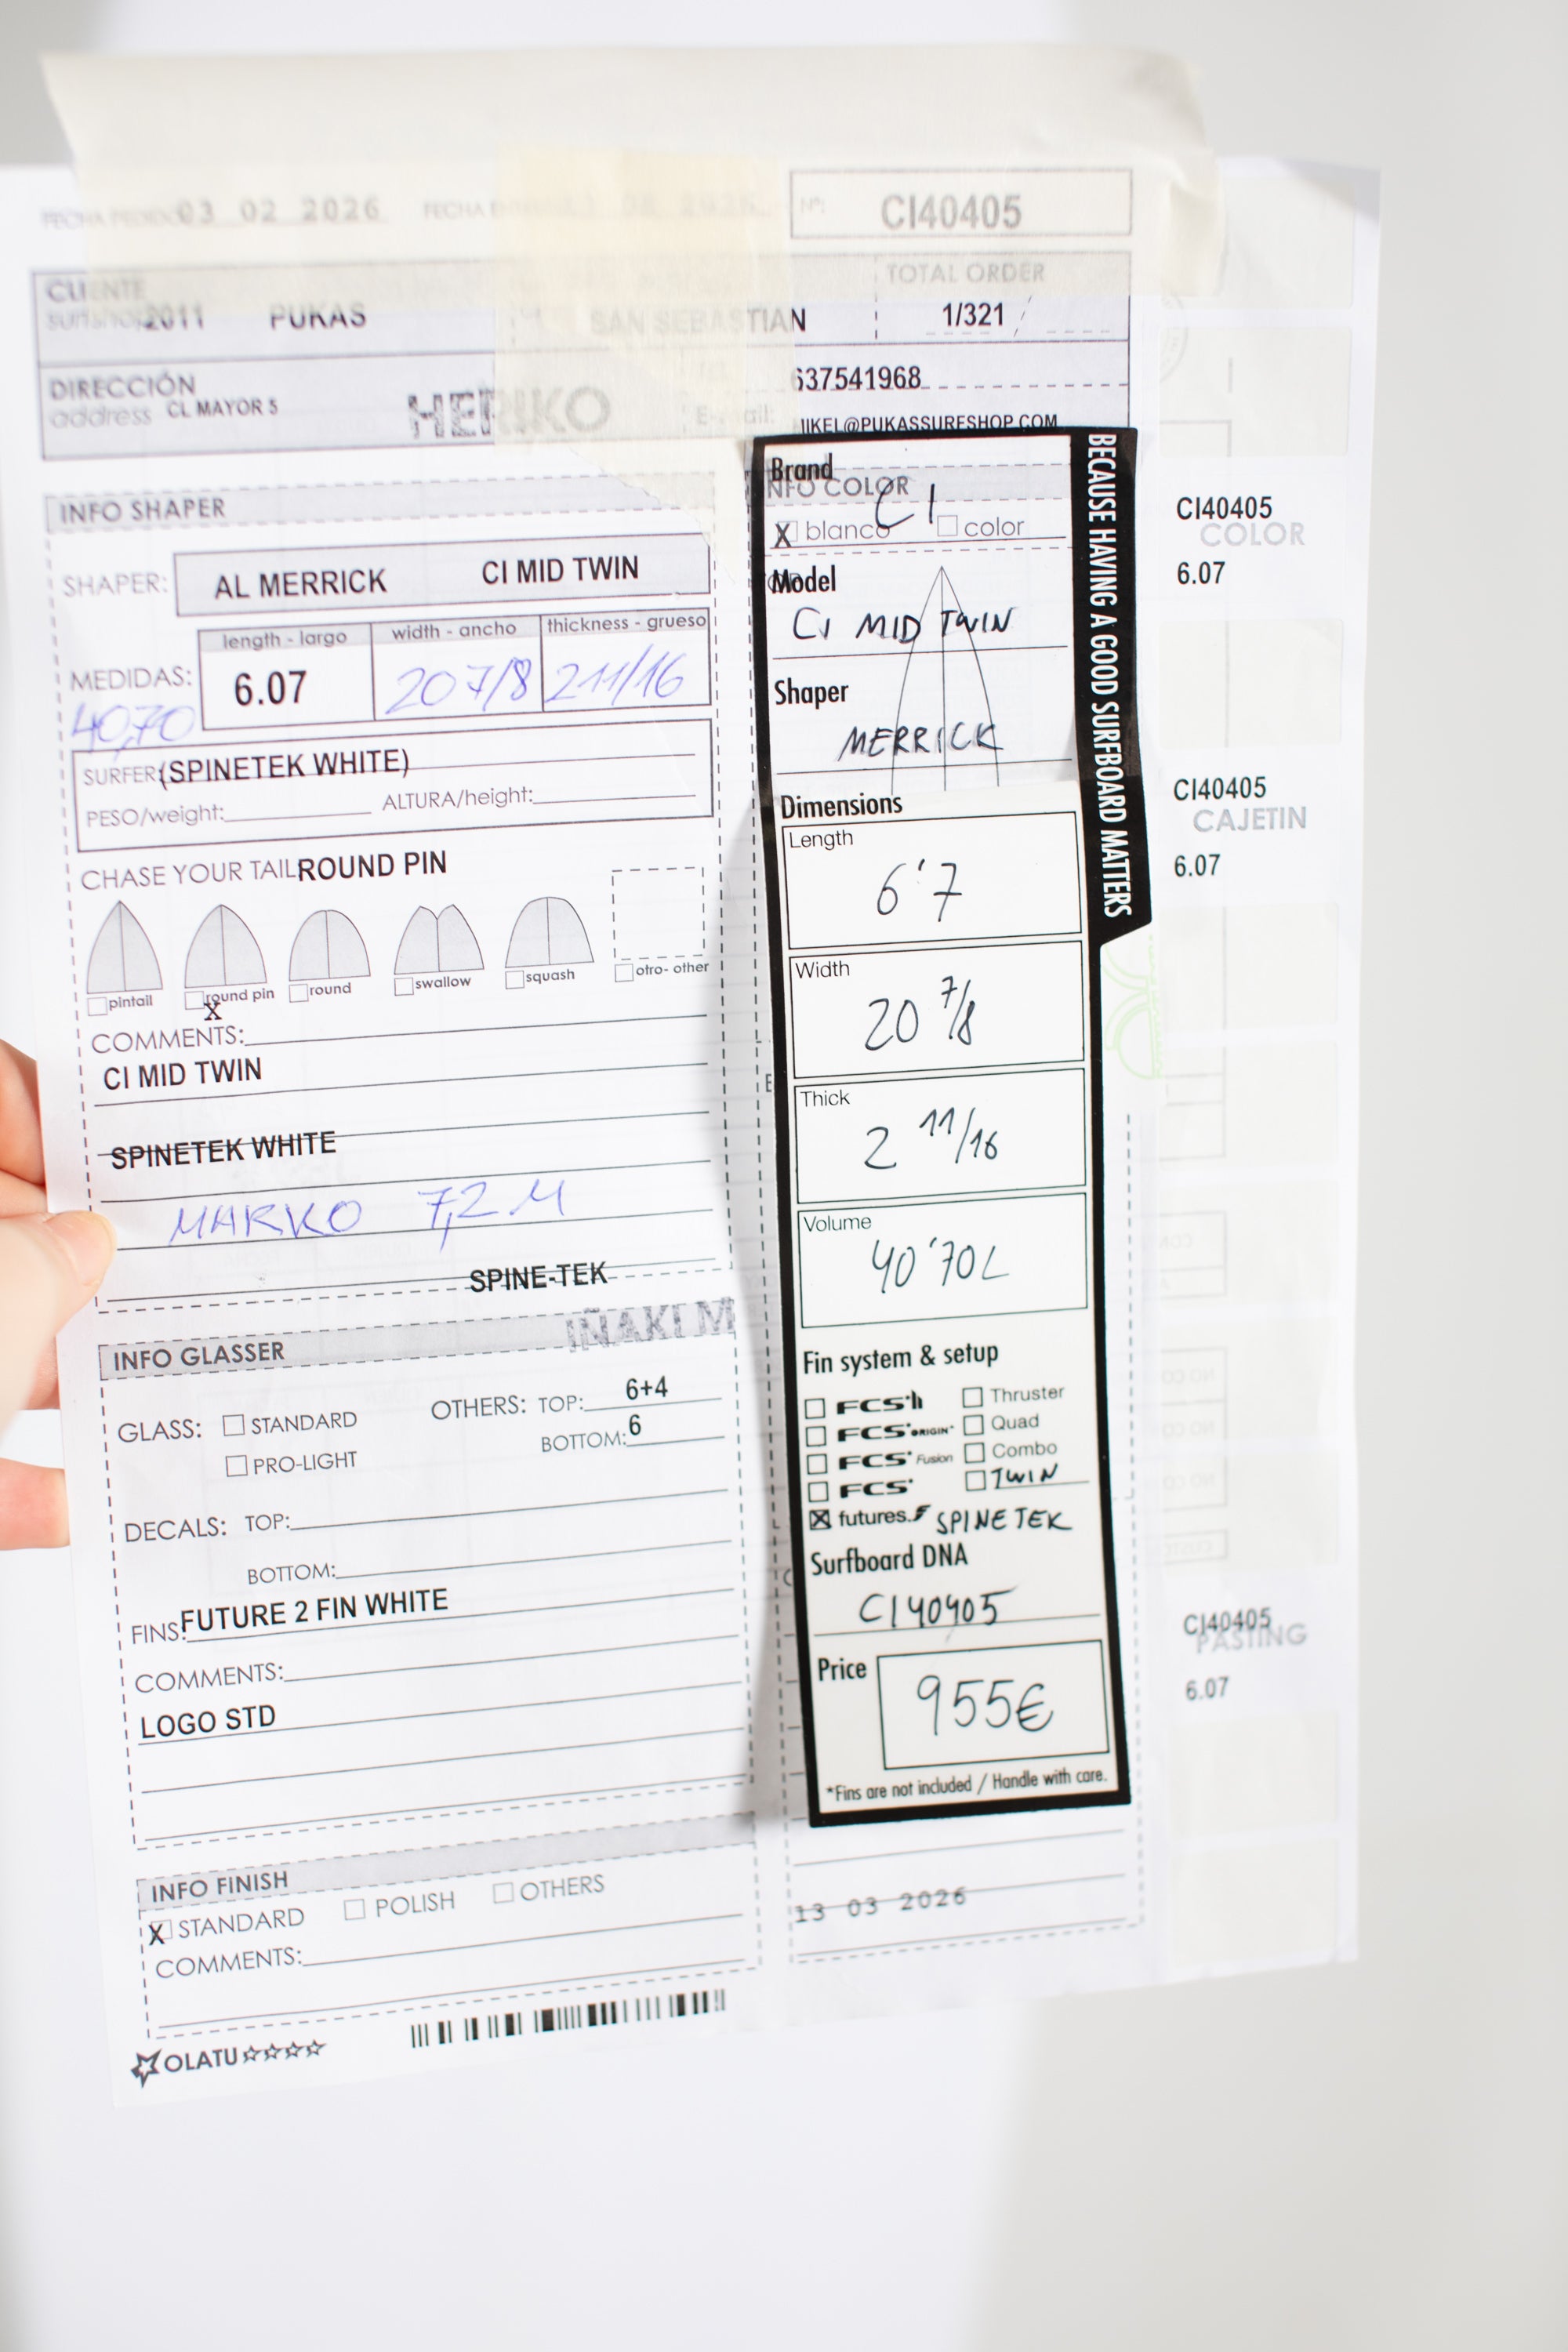 FECHA PEDIDO 03 02 2026
Nº: CI40405
CLIENTE
surfshop 2011 PUKAS SAN SEBASTIAN
TOTAL ORDER
1/321
DIRECCIÓN
address CL MAYOR 5
637541968
HERIKO
E-mail: MIKEL@PUKASSURFSHOP.COM
INFO SHAPER
SHAPER: AL MERRICK CI MID TWIN
length - largo width - ancho thickness - grueso
MEDIDAS: 6.07 20 7/8 2 11/16
40,70
SURFER: (SPINETEK WHITE)
PESO/weight: ALTURA/height:
CHASE YOUR TAIL ROUND PIN
pintail X round pin round swallow squash otro- other
COMMENTS:
CI MID TWIN
SPINETEK WHITE
MARKO 7,2 M
SPINE-TEK
IÑAKI M
INFO GLASSER
GLASS: STANDARD OTHERS: TOP: 6+4
PRO-LIGHT BOTTOM: 6
DECALS: TOP:
BOTTOM:
FINS: FUTURE 2 FIN WHITE
COMMENTS:
LOGO STD
INFO FINISH
X STANDARD POLISH OTHERS
COMMENTS:
OLATU
Brand
INFO COLOR
CI
X blanco color
Model
CI MID TWIN
Shaper
MERRICK
Dimensions
Length
6'7
Width
20 7/8
Thick
2 11/16
Volume
40'70L
Fin system & setup
FCS II Thruster
FCS ORIGIN Quad
FCS Fusion Combo
FCS TWIN
X futures. SPINETEK
Surfboard DNA
CI40405
Price
955€
*Fins are not included / Handle with care.
BECAUSE HAVING A GOOD SURFBOARD MATTERS
13 03 2026
CI40405
COLOR
6.07
CI40405
CAJETIN
6.07
CI40405
PASTING
6.07